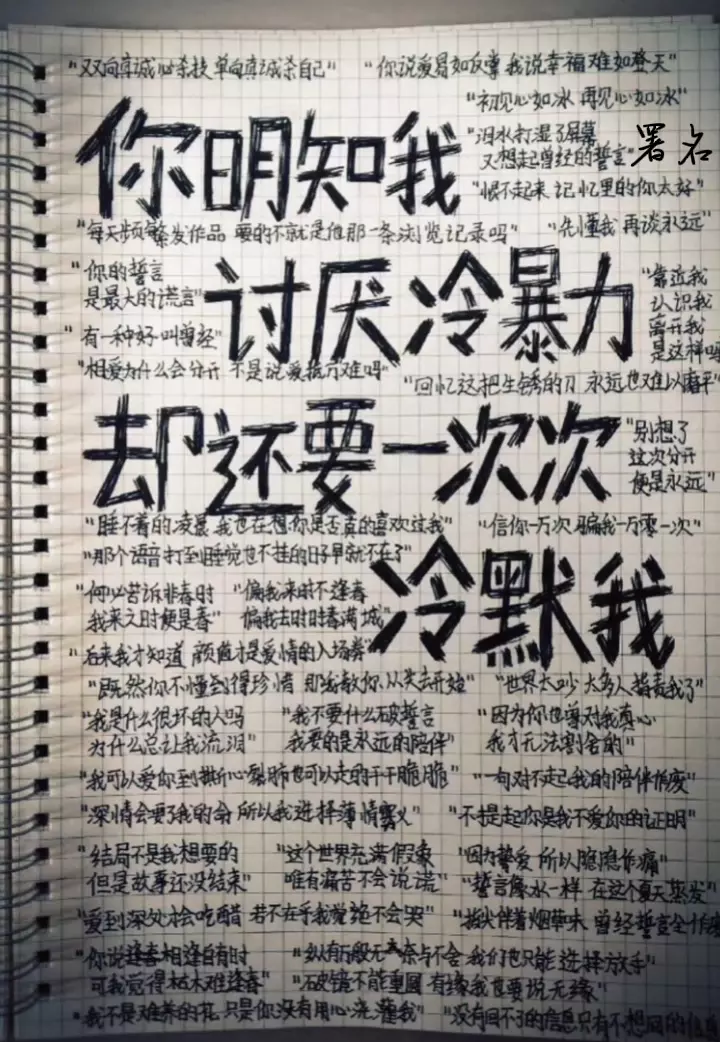 "双向真诚必杀技 单向真诚杀自己" "你说爱易如反掌 我说幸福难如登天"
"初见心如冰 再见心如冰"
你明知我
"泪水打湿了屏幕
又想起曾经的誓言"
署名
"恨不起来 记忆里的你太好"
"每天频繁发作品 要的不就是他那一条浏览记录吗" "先懂我 再谈永远"
"你的誓言
是最大的谎言"
讨厌冷暴力
"靠近我
认识我
离开我
是这样吗
"有一种好叫曾经"
"相爱为什么会分开 不是说爱抵万难吗"
"回忆这把生锈的刀 永远也难以痛平"
却还要一次次
"别想了
这次分开
便是永远"
"睡不着的凌晨 我也在想你是否真的喜欢过我" "信你一万次 骗我一万零一次"
"那个语音打到睡觉也不挂的日子早就不在了"
冷默我
"何必苦诉非春时
我来之时便是春"
"偏我来时不逢春
偏我去时时春满城"
"后来我才知道 颜值才是爱情的入场券"
"既然你不懂到得珍惜 那我教你从失去开始" "世界太吵 太多人指责我了"
"我是什么很坏的人吗
为什么总让我流泪"
"我不要什么破誓言
我要的是永远的陪伴"
"因为你也曾对我真心
我才无法割舍的"
"我可以爱你到撕心裂肺也可以走的干干脆脆" "一句对不起我的陪伴作废"
"深情会要了我的命 所以我选择薄情寡义" "不提起你是我不爱你的证明"
"结局不是我想要的
但是故事还没结束"
"这个世界充满假象
唯有痛苦不会说谎"
"因为挚爱 所以隐隐作痛"
"誓言像水一样 在这个夏天蒸发"
"爱到深处才会吃醋 若不在乎我觉绝不会哭" "指尖伴着烟草味 曾经誓言全作
"你说逢春相逢自有时
可我觉得枯木难逢春"
"纵有万般无奈与不舍 我们也只能选择放手"
"破镜不能重圆 有缘我也要说无缘"
"我不是难养的花 只是你没有用心浇灌我" "没有回不了的信息只有不想回的信息